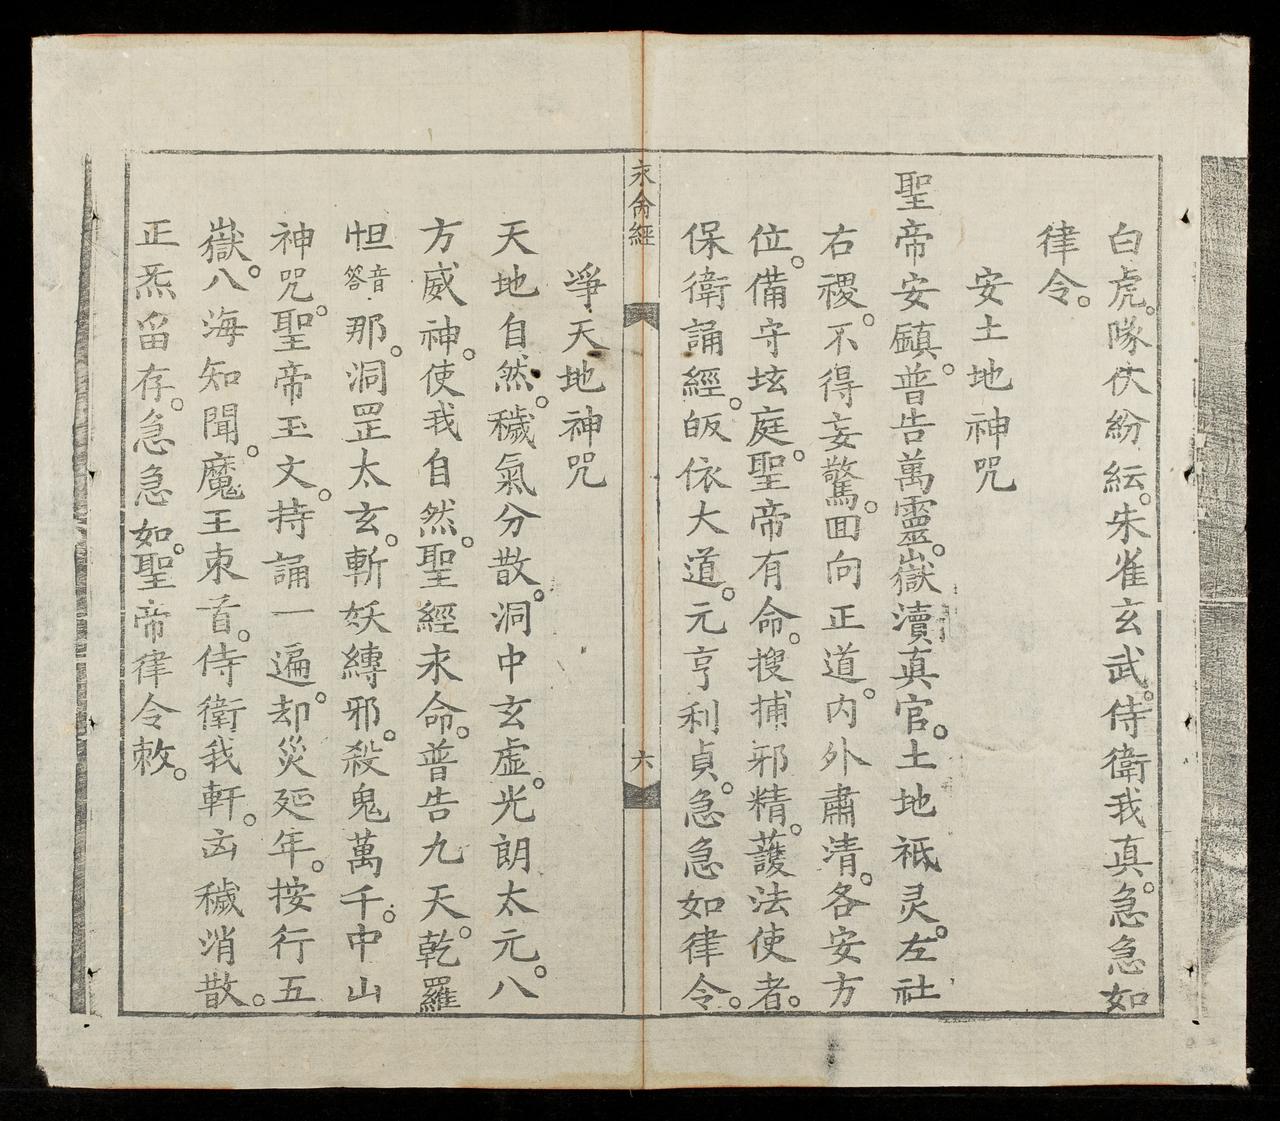 白虎。隊仗紛紜。朱雀玄武。侍衛我真。急急如
律令。
安土地神咒
聖帝安鎮。普告萬靈。嶽瀆真官。土地祗灵。左社
右稷。不得妄驚。囬向正道。内外肅清。各安方
位。備守坛庭。聖帝有命。搜捕邪精。護法使者。
保衛誦經。皈依大道。元亨利貞。急急如律令。
永命經
六
淨天地神咒
天地自然。穢氣分散。洞中玄虛。光朗太元。八
方威神。使我自然。聖經永命。普告九天。乾羅
怛音答那。洞罡太玄。斬妖縛邪。殺鬼萬千。中山
神咒。聖帝玉文。持誦一遍。却災延年。按行五
嶽。八海知聞。魔王束首。侍衛我軒。凶穢消散。
正炁留存。急急如。聖帝律令敕。